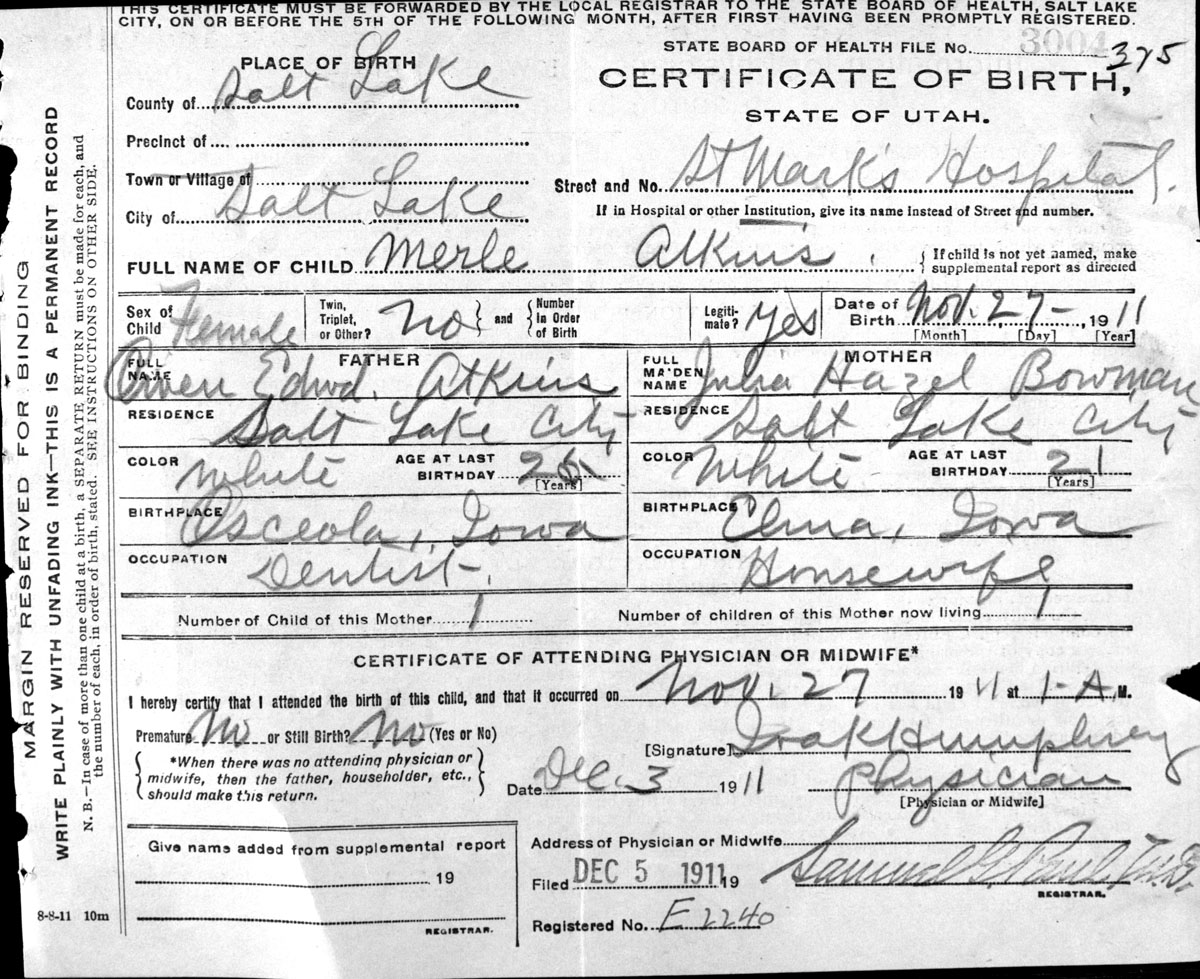 THIS CERTIFICATE MUST BE FORWARDED BY THE LOCAL REGISTRAR TO THE STATE BOARD OF HEALTH, SALT LAKE
CITY, ON OR BEFORE THE 5TH OF THE FOLLOWING MONTH, AFTER FIRST HAVING BEEN PROMPTLY REGISTERED.
STATE BOARD OF HEALTH FILE No. 3004 375
PLACE OF BIRTH
CERTIFICATE OF BIRTH,
STATE OF UTAH.
County of Salt Lake
Precinct of
Town or Village of
City of Salt Lake
Street and No. St Mark's Hospital.
If in Hospital or other Institution, give its name instead of Street and number.
FULL NAME OF CHILD Merle Atkins
If child is not yet named, make
supplemental report as directed
Sex of Child Female
Twin, Triplet, or Other? No and Number in Order of Birth
Legiti-mate? Yes
Date of Birth Nov. 27- 1911
[Month] [Day] [Year]
FATHER
FULL NAME Owen Edwd. Atkins
RESIDENCE Salt Lake City
COLOR White AGE AT LAST BIRTHDAY 26
[Years]
BIRTHPLACE Osceola, Iowa
OCCUPATION Dentist
MOTHER
FULL MAIDEN NAME Julia Hazel Bowman
RESIDENCE Salt Lake City
COLOR White AGE AT LAST BIRTHDAY 21
[Years]
BIRTHPLACE Elma, Iowa
OCCUPATION Housewife
Number of Child of this Mother 1
Number of children of this Mother now living 1
CERTIFICATE OF ATTENDING PHYSICIAN OR MIDWIFE*
I hereby certify that I attended the birth of this child, and that it occurred on Nov. 27 1911 at 1-A.M.
Premature No or Still Birth? No (Yes or No)
*When there was no attending physician or
midwife, then the father, householder, etc.,
should make this return.
[Signature] Ira K Humphrey
Date Dec. 3 1911
Physician
[Physician or Midwife]
Give name added from supplemental report
19
REGISTRAR.
8-8-11 10m
Address of Physician or Midwife
Filed DEC 5 1911 19
Samuel G. Paul M.D.
REGISTRAR.
Registered No. E 2240
MARGIN RESERVED FOR BINDING
WRITE PLAINLY WITH UNFADING INK—THIS IS A PERMANENT RECORD
N. B.—In case of more than one child at a birth, a SEPARATE RETURN must be made for each, and
the number of each, in order of birth, stated. SEE INSTRUCTIONS ON OTHER SIDE.